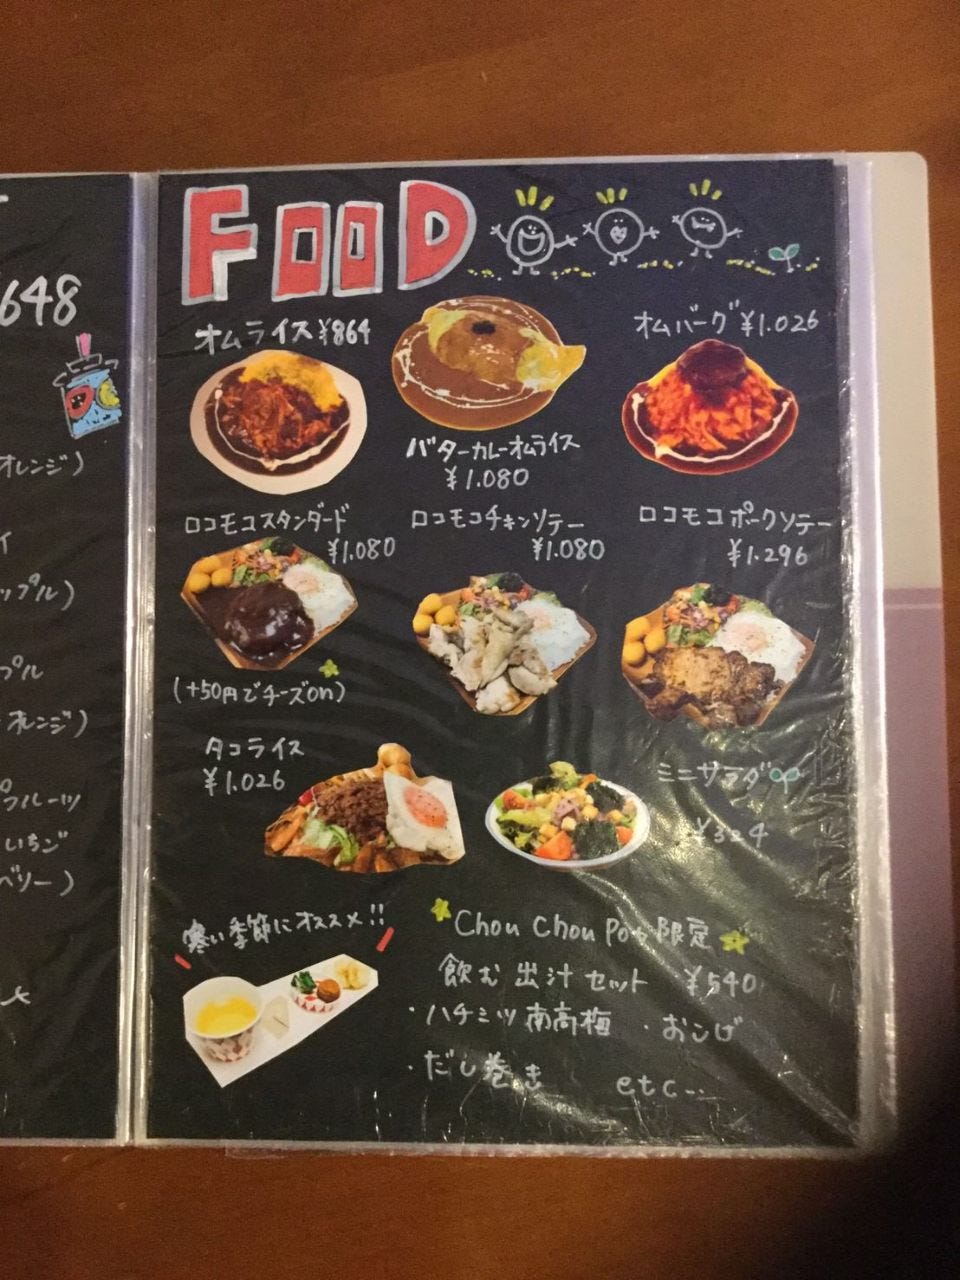 648
オレンジ)
イ
ップル)
プル
オレンジ)
フルーツ
いちご
ベリー)
FOOD
オムライス ¥864
バターカレーオムライス
¥1.080
オムバーグ ¥1.026
ロコモコスタンダード
¥1.080
(+50円でチーズon)
ロコモコチキンソテー
¥1.080
ロコモコポークソテー
¥1.296
タコライス
¥1.026
ミニサラダ
¥324
寒い季節にオススメ!!
Chou Chou Pot 限定
飲む出汁セット ¥540
・ハチミツ南高梅 ・おこげ
・だし巻き etc...